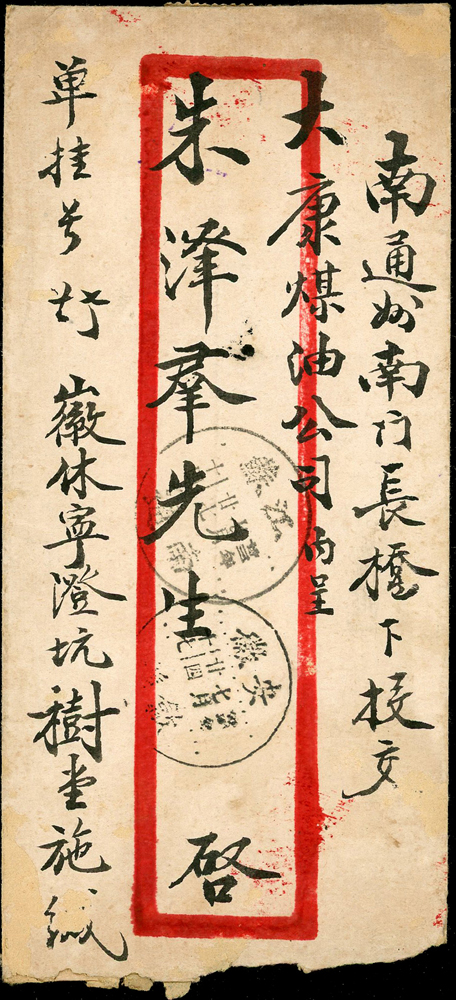 南通州南门長橋下投交
大康煤油公司内呈
朱澤羣先生 啓
单挂号 徽休寧澄坑樹堂施缄
江蘇
安徽